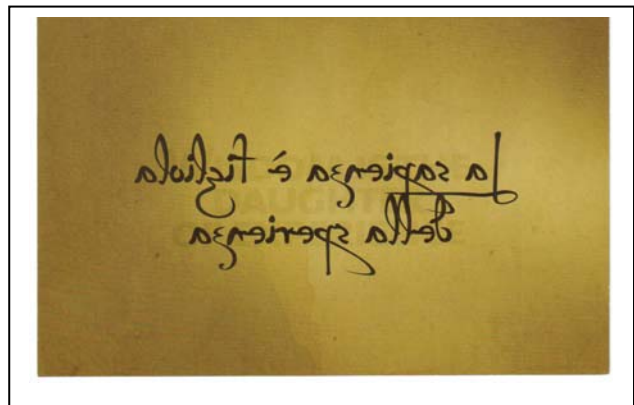 La sapienza è figliuola
della sperienza